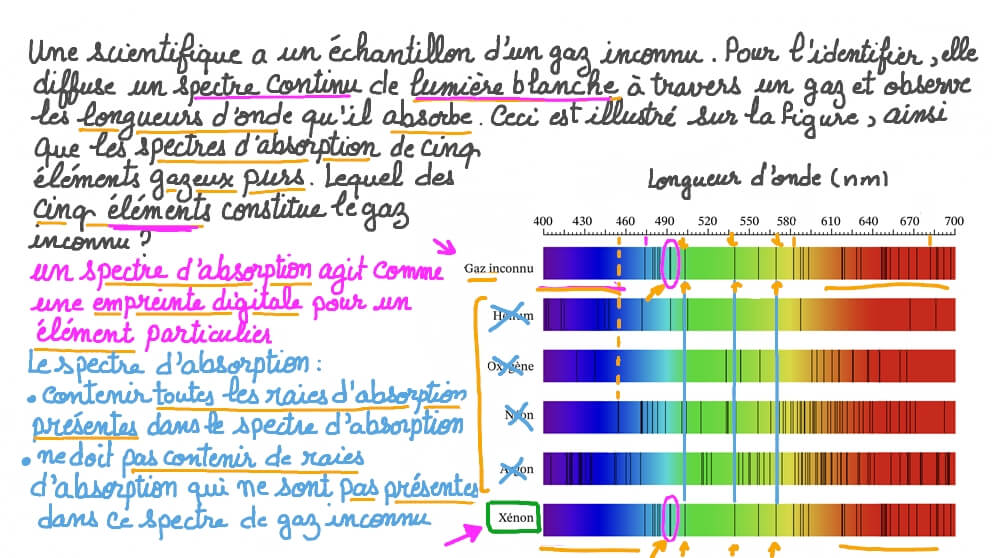 Une scientifique a un échantillon d'un gaz inconnu. Pour l'identifier, elle
diffuse un spectre continu de lumière blanche à travers un gaz et observe
les longueurs d'onde qu'il absorbe. Ceci est illustré sur la figure, ainsi
que les spectres d'absorption de cinq
éléments gazeux purs. Lequel des
cinq éléments constitue le gaz
inconnu ?
un spectre d'absorption agit comme
une empreinte digitale pour un
élément particulier
Le spectre d'absorption :
• contenir toutes les raies d'absorption
présentes dans le spectre d'absorption
• ne doit pas contenir de raies
d'absorption qui ne sont pas présentes
dans ce spectre de gaz inconnu
Longueur d'onde (nm)
400 430 460 490 520 550 580 610 640 670 700
Gaz inconnu
Hélium
Oxygène
Néon
Argon
Xénon